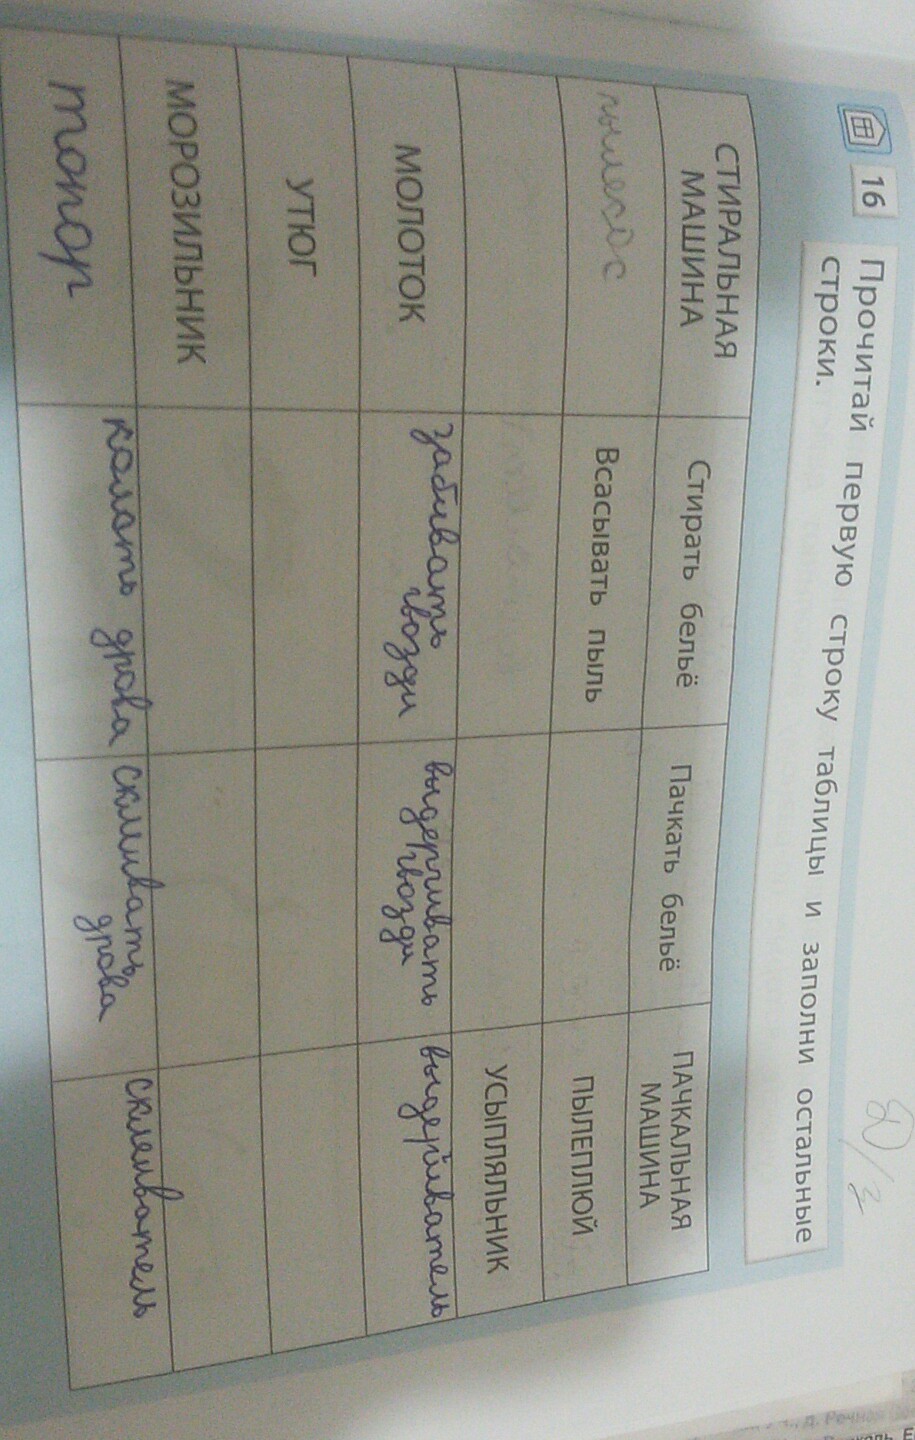 Д/з
16 Прочитай первую строку таблицы и заполни остальные
строки.
СТИРАЛЬНАЯ
МАШИНА
Стирать бельё
Пачкать бельё
ПАЧКАЛЬНАЯ
МАШИНА
пылесос
Всасывать пыль
ПЫЛЕПЛЮЙ
УСЫПЛЯЛЬНИК
МОЛОТОК
забивать
гвозди
выдергивать
гвозди
выдергиватель
УТЮГ
МОРОЗИЛЬНИК
топор
колоть дрова
склеивать
дрова
склеиватель
д. Речная